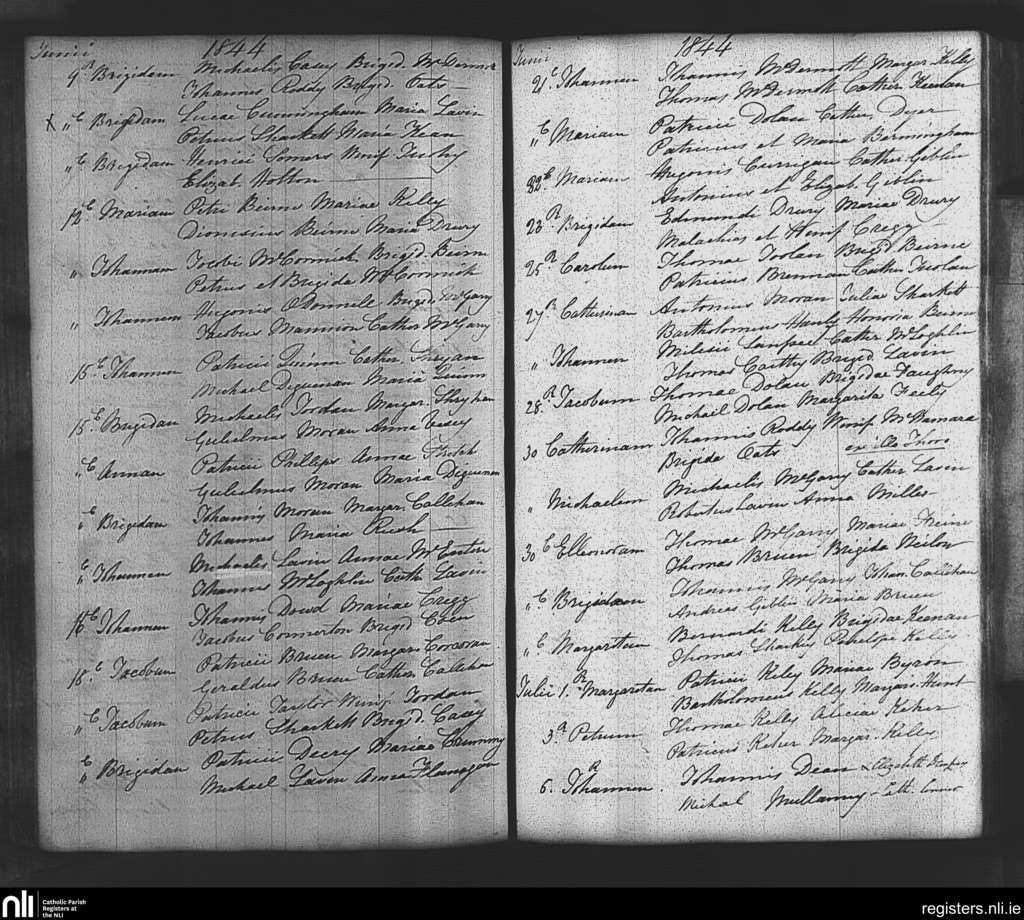 Junii 1844
9 R Brigidam Michaelis Casey Brigd. McDermot
Johannes Roddy Brigd. Oats
X " C Brigidam Lucae Cunningham Maria Lavin
Petrus Sharkett Maria Kean
" C Brigidam Henrici Somers Winif
Elizab. Holton
12 C Mariam Petri Beirne Mariae Kelly
Dionisius Beirne Maria Drury
" Johannam Jacobi McCormick Brigd. Beirne
Petrus et Brigida McCormick
" Johannem Hugonis O'Donnell Brigd.
Jacobus Mannion Cather McGarry
15 C Johannem Patricii Quinn Cather
Michael Digenan Maria Quinn
15 C Brigidam Michaelis Jordan Margar.
Gulielmus Moran Anna
" C Annam Patricii Phillips Annae
Gulielmus Moran Maria Digenan
" C Brigidam Johannis Moran Margar. Callehan
Johannes Maria Rush
" C Johannem Michaelis Lavin Annae
Johannes McLoghlin Cath Lavin
16 C Johannem Johannis Dowd Mariae Cregg
Jacobus Brigd.
18 C Jacobum Patricii Bruen Margar. Corcoran
Geraldus Bruen Cather. Callehan
" C Jacobum Patricii Taylor Winif Jordan
Petrus Sharkett Brigd. Casey
" C Brigidam Patricii Deery Mariae
Michael Lavin Anna Flanagan
Junii 1844
21 C Johannem Johannis McDermott Margar. Kelly
Thomas McDermott Cather Keenan
" C Mariam Patricii Dolan Cather Dyer
Patricius et Maria Bermingham
22 C Mariam Hugonis Currigan Cather Giblin
Antonius et Elizab. Giblin
23 R Brigidam Edmundi Drury Mariae Drury
Malachias et Winif Cregg
25 R Carolum Thomae Toolan Brigd Beirne
Patricius Brennan Cather Toolan
27 R Catherinam Antonius Moran Julias Sharkett
Bartholomeus Hanly Honoria Beirne
" Johannem Milesii Cather McLoghlin
Thomas Brigd. Lavin
28 R Jacobum Thomae Dolan Brigidae
Michail Dolan Margarita Feely
30 Catherinam Johannis Roddy Winif McNamara
Brigida Oats
" Michaelem Michaelis McGarry Cather Lavin
Robertus Lavin Anna Milles
30 C Elleonoram Thomae McGarry Mariae
Thomas Bruen Brigida
" C Brigidam Johannis McGarry Johan. Callehan
Andreas Giblin Maria Bruen
" C Margaritam Bernardi Kelly Brigidae Keenan
Thomas Sharkey Penelope Kelly
Julii 1 R Margaritam Patricii Kiley Mariae Byron
Bartholomeus Kelly Margar. Hunt
3 R Petrum Thomae Kelly Aliciae Keher
Patricius Keher Margar. Kelly
6. R Johannem. Johannis Dean & Elizabeth
Michal Mullanny
nli
Catholic Parish
Registers at
the NLI
registers.nli.ie